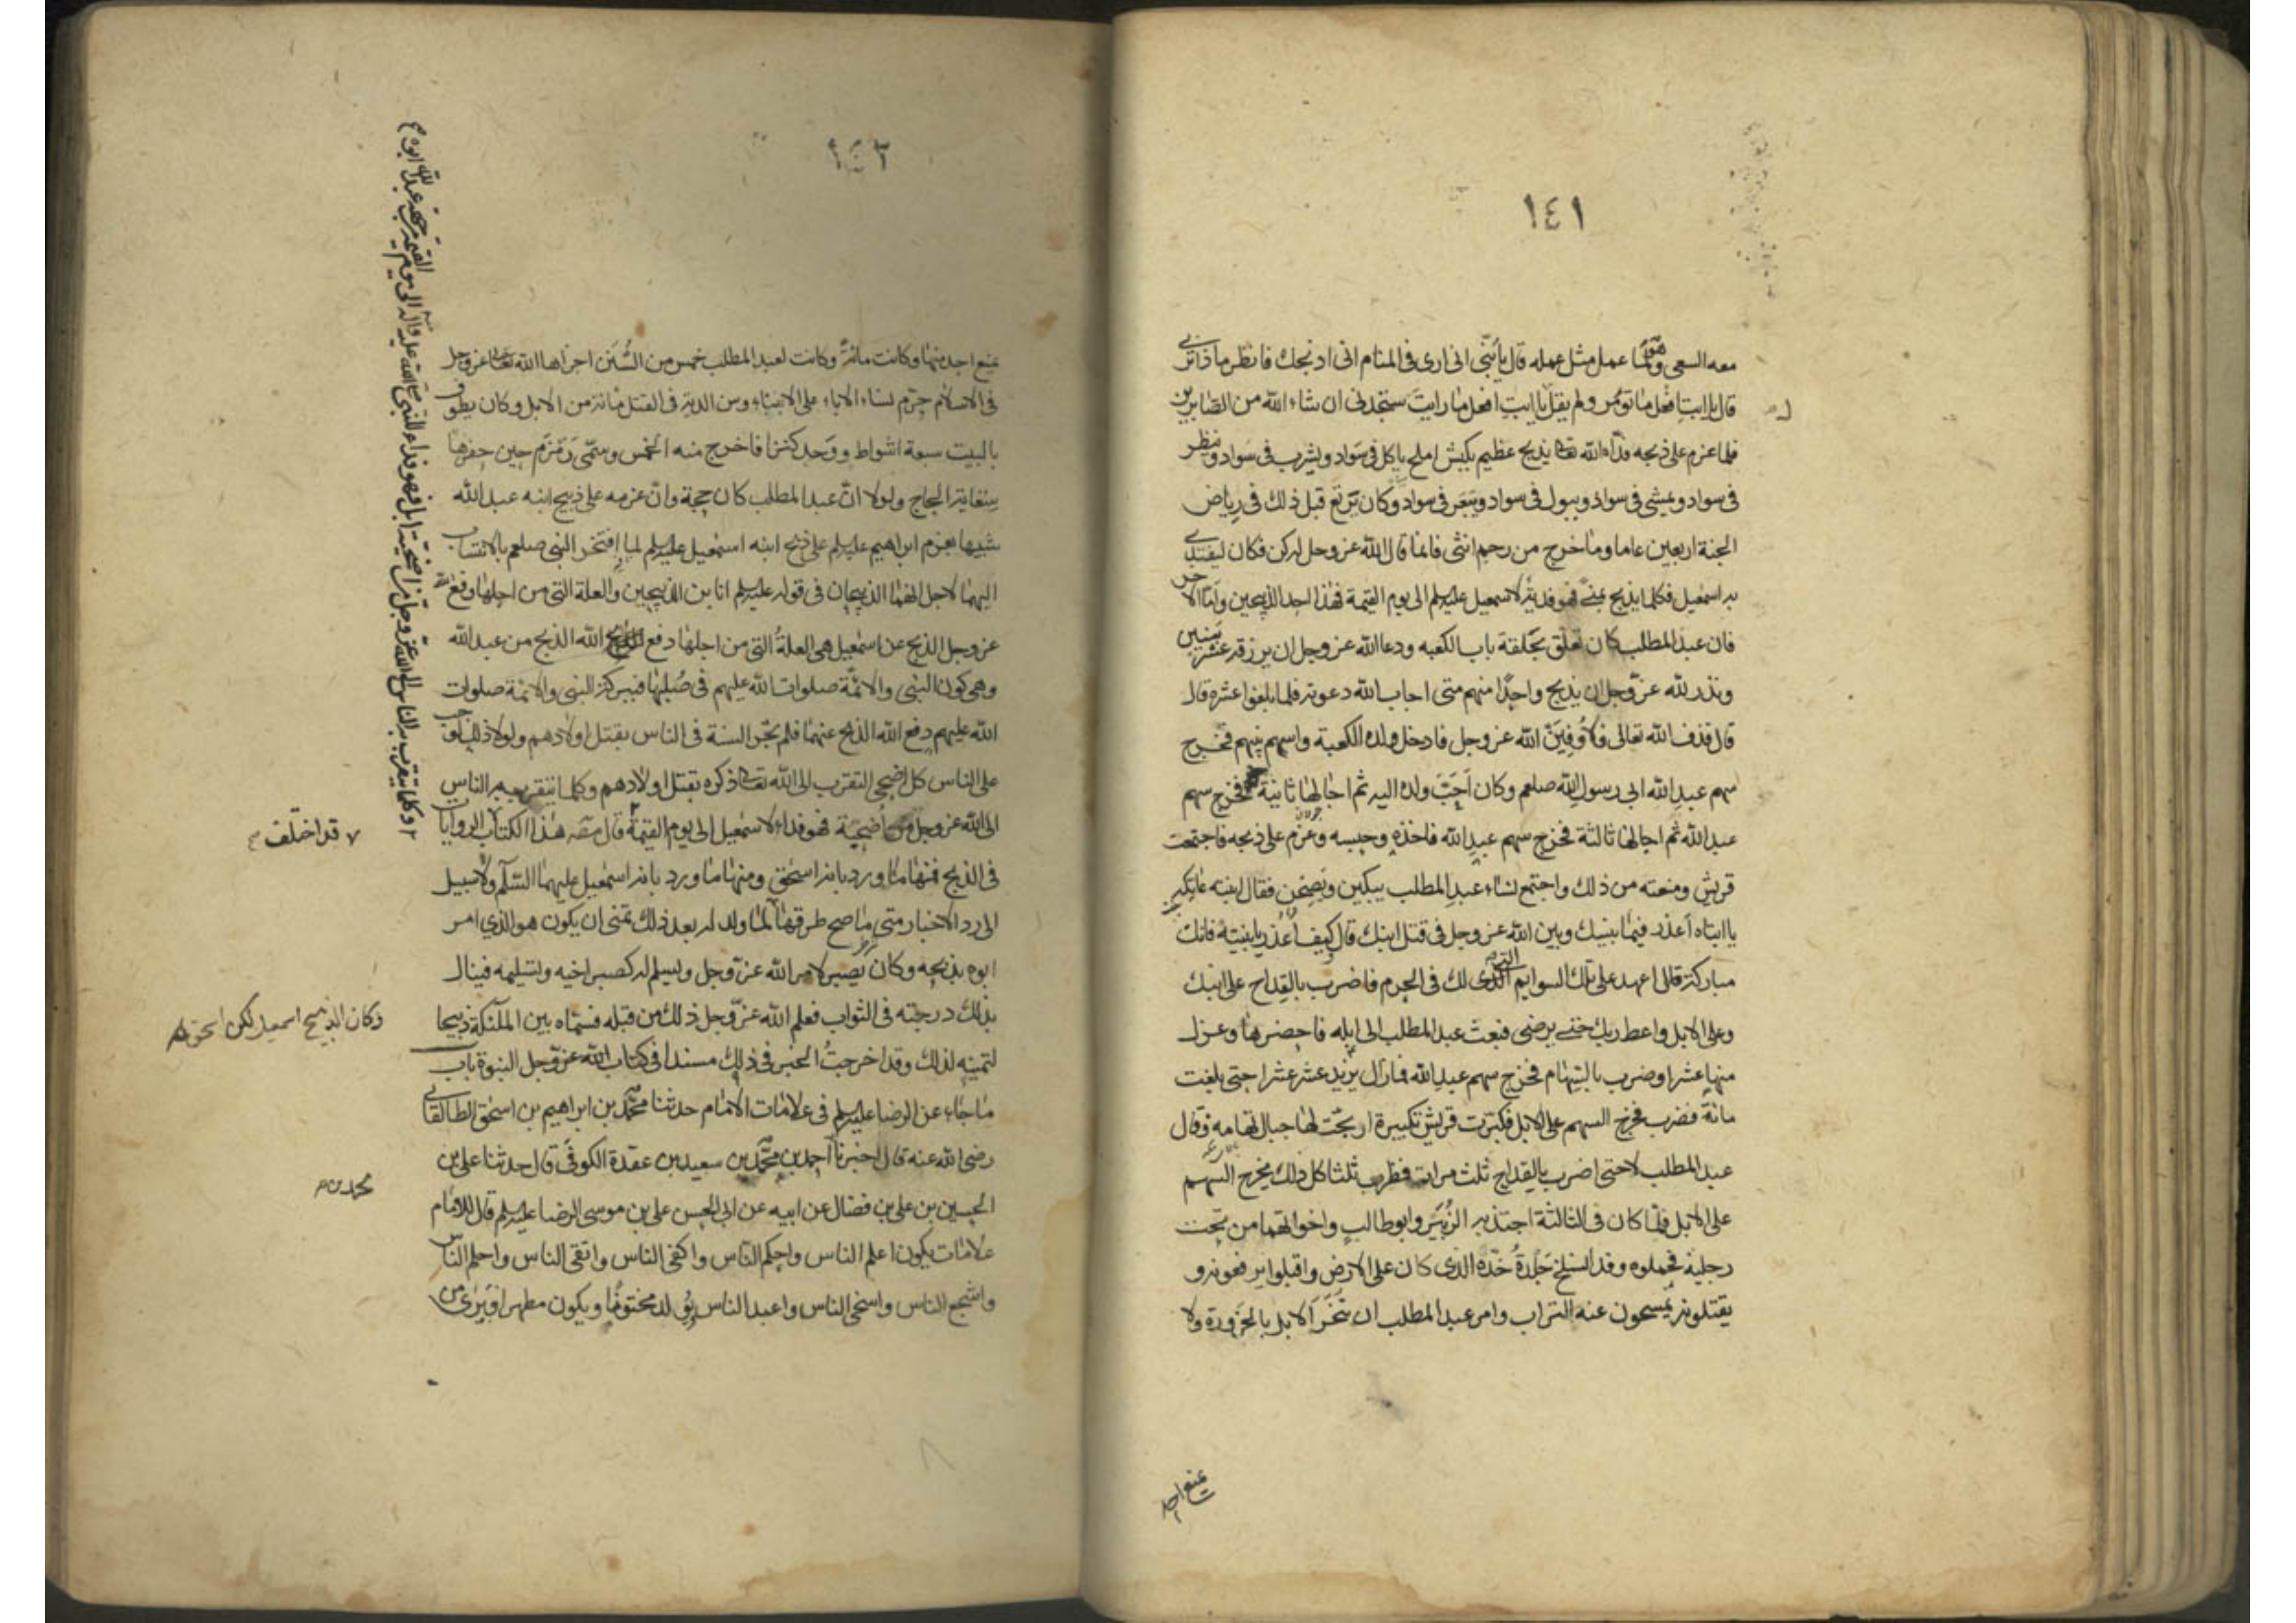 ١٤١
معه السعى وهو لما عمل مثل عمله قال يا بنى انى ارى فى المنام انى اذبحك فانظر ماذا ترى
قال يا ابت افعل ما تؤمر ولم يقل يا ابت افعل ما رايت ستجدنى ان شاء الله من الصابرين
فلما عزم على ذبحه فداه الله تعالى بذبح عظيم بكبش املح ياكل فى سواد ويشرب فى سواد وينظر
فى سواد ويمشى فى سواد ويبول فى سواد ويبعر فى سواد وكان يرتع قبل ذلك فى رياض
الجنة اربعين عاما وما خرج من رحم انثى فانما قال الله عز وجل له كن فكان ليفتدى
به اسمعيل فكلما يذبح بمنى فهو فدية لاسمعيل عليه السلم الى يوم القيمة فهذا احد الذبيحين واما الآخر
فان عبد المطلب كان تعلق بحلقة باب الكعبه ودعا الله عز وجل ان يرزقه عشر بنين
ونذر لله عز وجل ان يذبح واحدا منهم متى اجاب الله دعوته فلما بلغوا عشره قال
قال قدف الله تعالى فلاوفين الله عز وجل فادخل ولده الكعبة واسهم بينهم فخرج
سهم عبد الله ابى رسول الله صلعم وكان احب ولده اليه ثم اجالها ثانية فخرج سهم
عبد الله ثم اجالها ثالثة فخرج سهم عبد الله فاخذه وحبسه وعزم على ذبحه فاجتمعت
قريش ومنعته من ذلك واجتمع نساء عبد المطلب يبكين ويصحن فقال ابنته عاتكه
يا ابتاه اعذر فيما بينك وبين الله عز وجل فى قتل ابنك قال كيف اعذر يا بنية فانك
مباركة قالى اعهد على تلك السوايم التى لك فى الحرم فاضرب بالقداح على ابنك
وعلى الابل واعط ربك حتى يرضى فبعث عبد المطلب الى ابله فاحضرها وعزل
منها عشرا وضرب بالسهام فخرج سهم عبد الله فما زال يزيد عشر عشرا حتى بلغت
مائة فضرب فخرج السهم على الابل فكبرت قريش تكبيرة ارتجت لها جبال تهامه وقال
عبد المطلب لا حتى اضرب بالقداح ثلث مرات فضرب ثلثا كل ذلك يخرج السهم
على الابل فلما كان فى الثالثة اجتذبه الزبير وابوطالب واخوالهما من تحت
رجليه فحملوه وقد انسلخ جلدة خده الذى كان على الارض واقبلوا يرفعونه و
يقتلونه يمسحون عنه التراب وامر عبد المطلب ان تنحر الابل بالحزورة ولا
يمنع احد
١٤٢
يمنع احد منها وكانت مائة وكانت لعبد المطلب خمس من السنن اجراها الله تعالى عز وجل
فى الاسلام حرم نساء الاباء على الابناء وسن الدية فى القتل مائة من الابل وكان يطوف
بالبيت سبعة اشواط ووجد كنزا فاخرج منه الخمس وسمى زمزم حين حفرها
سقاية الحاج ولولا ان عبد المطلب كان حجة وان عزمه على ذبح ابنه عبد الله
شبيها بعزم ابراهيم عليه السلم على ذبح ابنه اسمعيل عليه السلم لما افتخر النبى صلعم بالانتساب
اليهما لاجل انهما الذبيحان فى قوله عليه السلم انا بن الذبيحين والعلة التى من اجلها دفع الله
عز وجل الذبح عن اسمعيل هى العلة التى من اجلها دفع الله الذبح من عبد الله
وهى كون النبى والائمة صلوات الله عليهم فى صلبهما فببركة النبى والائمة صلوات
الله عليهم دفع الله الذبح عنهما فلم تجر السنة فى الناس بقتل اولادهم ولولا ذلك لوجب
على الناس كل اضحى التقرب الى الله تعالى ذكره بقتل اولادهم وكلما يتقرب به الناس
الى الله عز وجل من اضحية فهو فداء لاسمعيل الى يوم القيمة قال مصنف هذا الكتاب الروايات
فى الذبح فمنها ما ورد بانه اسحق ومنها ما ورد بانه اسمعيل عليهما السلم ولا سبيل
الى رد الاخبار متى ما صح طرقها لما ولد له بعد ذلك تمنى ان يكون هو الذى امر
ابوه بذبحه وكان يصبر لامر الله عز وجل ويسلم له كصبر اخيه وتسليمه فينال
بذلك درجته فى الثواب فعلم الله عز وجل ذلك من قبله فسماه بين الملئكة ذبيحا
لتمنيه لذلك وقد اخرجت الخبر فى ذلك مسندا فى كتاب الله عز وجل النبوة باب
ما جاء عن الرضا عليه السلم فى علامات الامام حدثنا محمد بن ابراهيم بن اسحق الطالقانى
رضى الله عنه قال اخبرنا احمد بن محمد بن سعيد بن عقدة الكوفى قال حدثنا على بن
الحسين بن على بن فضال عن ابيه عن ابى الحسن على بن موسى الرضا عليه السلم قال للامام
علامات يكون اعلم الناس واحكم الناس واكفى الناس واتقى الناس واحلم الناس
واشجع الناس واسخى الناس واعبد الناس يولد مختونا ويكون مطهرا ويرى من
وكلما يتقرب به الناس الى الله عز وجل من اضحية ابل فهو فداء للنبى صلى الله عليه وآله الى يوم القيمة من جهة عبد الله ابوه
قد اختلف
وكان الذبيح اسمعيل لكن اسحق
محمد بن